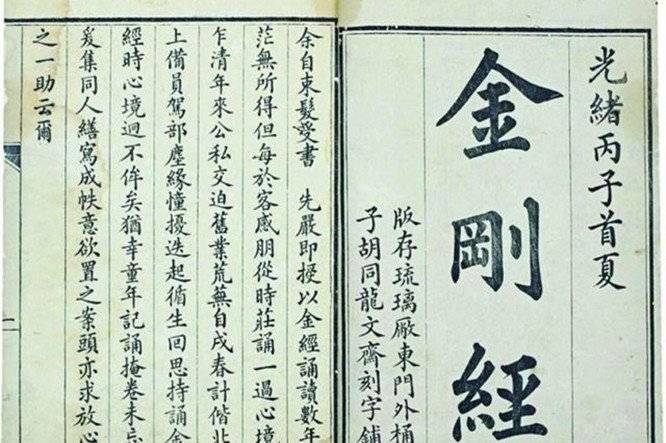 光緒丙子首夏
金剛經
版存琉璃厰東門外桶
子胡同龍文齋刻字鋪
余自束髮受書　先嚴即授以金經誦讀數年
茫無所得但每於客感朋從時莊誦一過心境
乍清年來公私交迫舊業荒蕪自戌春計偕北
上備員駕部塵緣憧擾迭起循生回思持誦金
經時心境迥不侔矣猶幸童年記誦掩卷未忘
爰集同人繕寫成帙意欲置之案頭亦求放心
之一助云爾
一